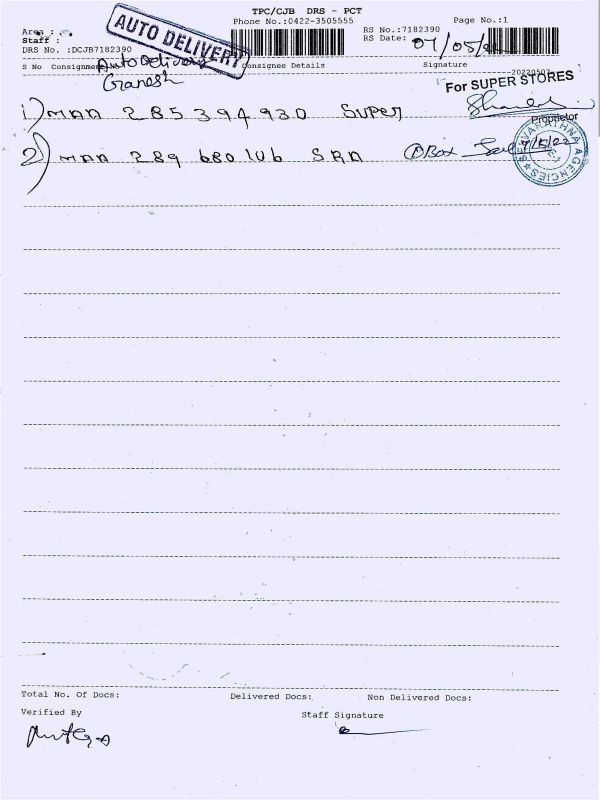 TPC/CJB DRS - PCT
Phone No.:0422-3505555
Page No.:1
AUTO DELIVERY
Area :
Staff :
DRS No. :DCJB7182390
RS No.:7182390
RS Date: 07/05/
S No Consignment Consignee Details Signature
Auto Delivery
Ganesh
20220507
For SUPER STORES
Proprietor
1) MAA 285394930 SUPER
2) MAA 289 680 106 SRA ① Box 7/5/22
AGENCIES
Total No. Of Docs: Delivered Docs: Non Delivered Docs:
Verified By Staff Signature